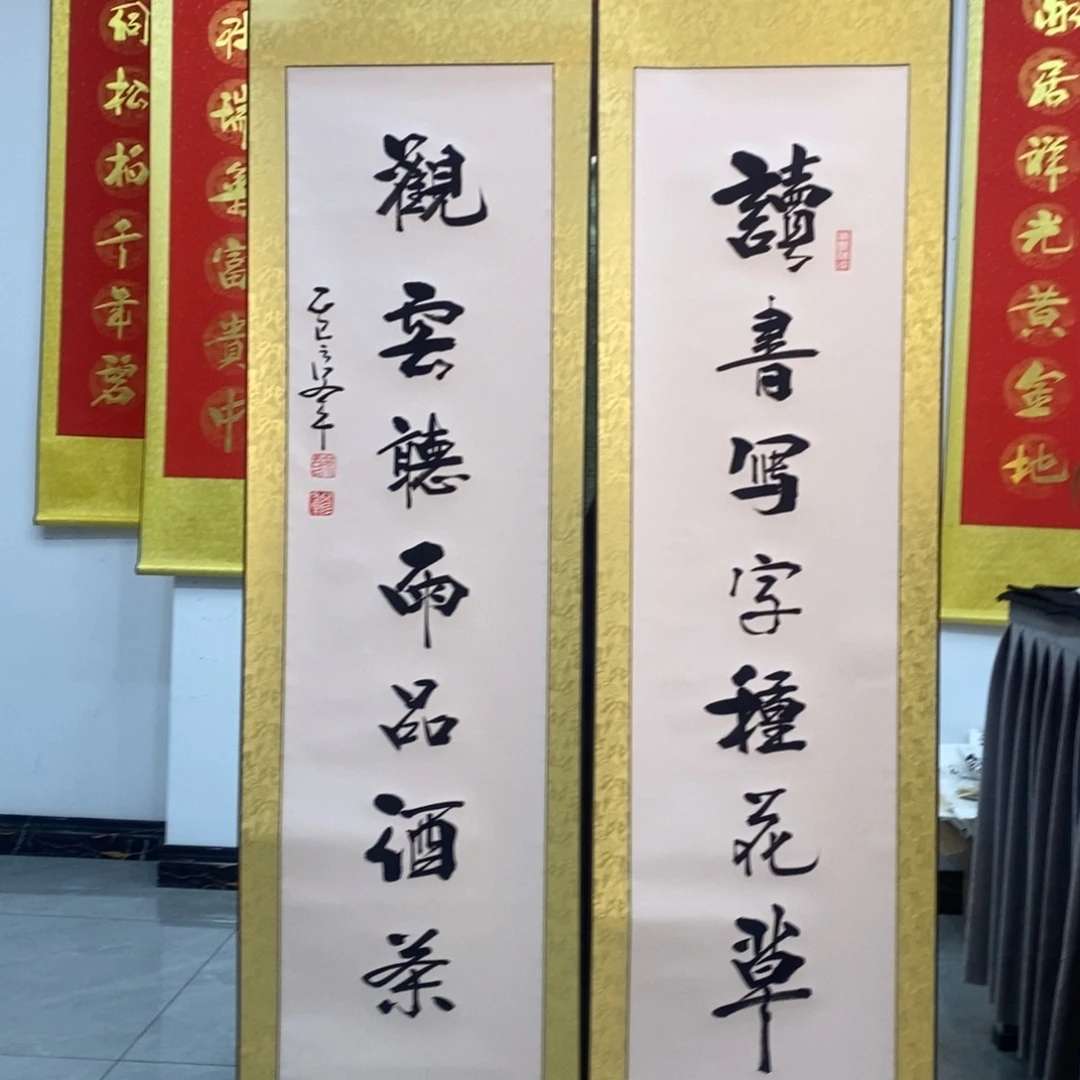 居祥光黄金地
讀書写字種花草
觀雲聽雨品酒茶
乙巳
瑞氣富貴中
松柏千年碧